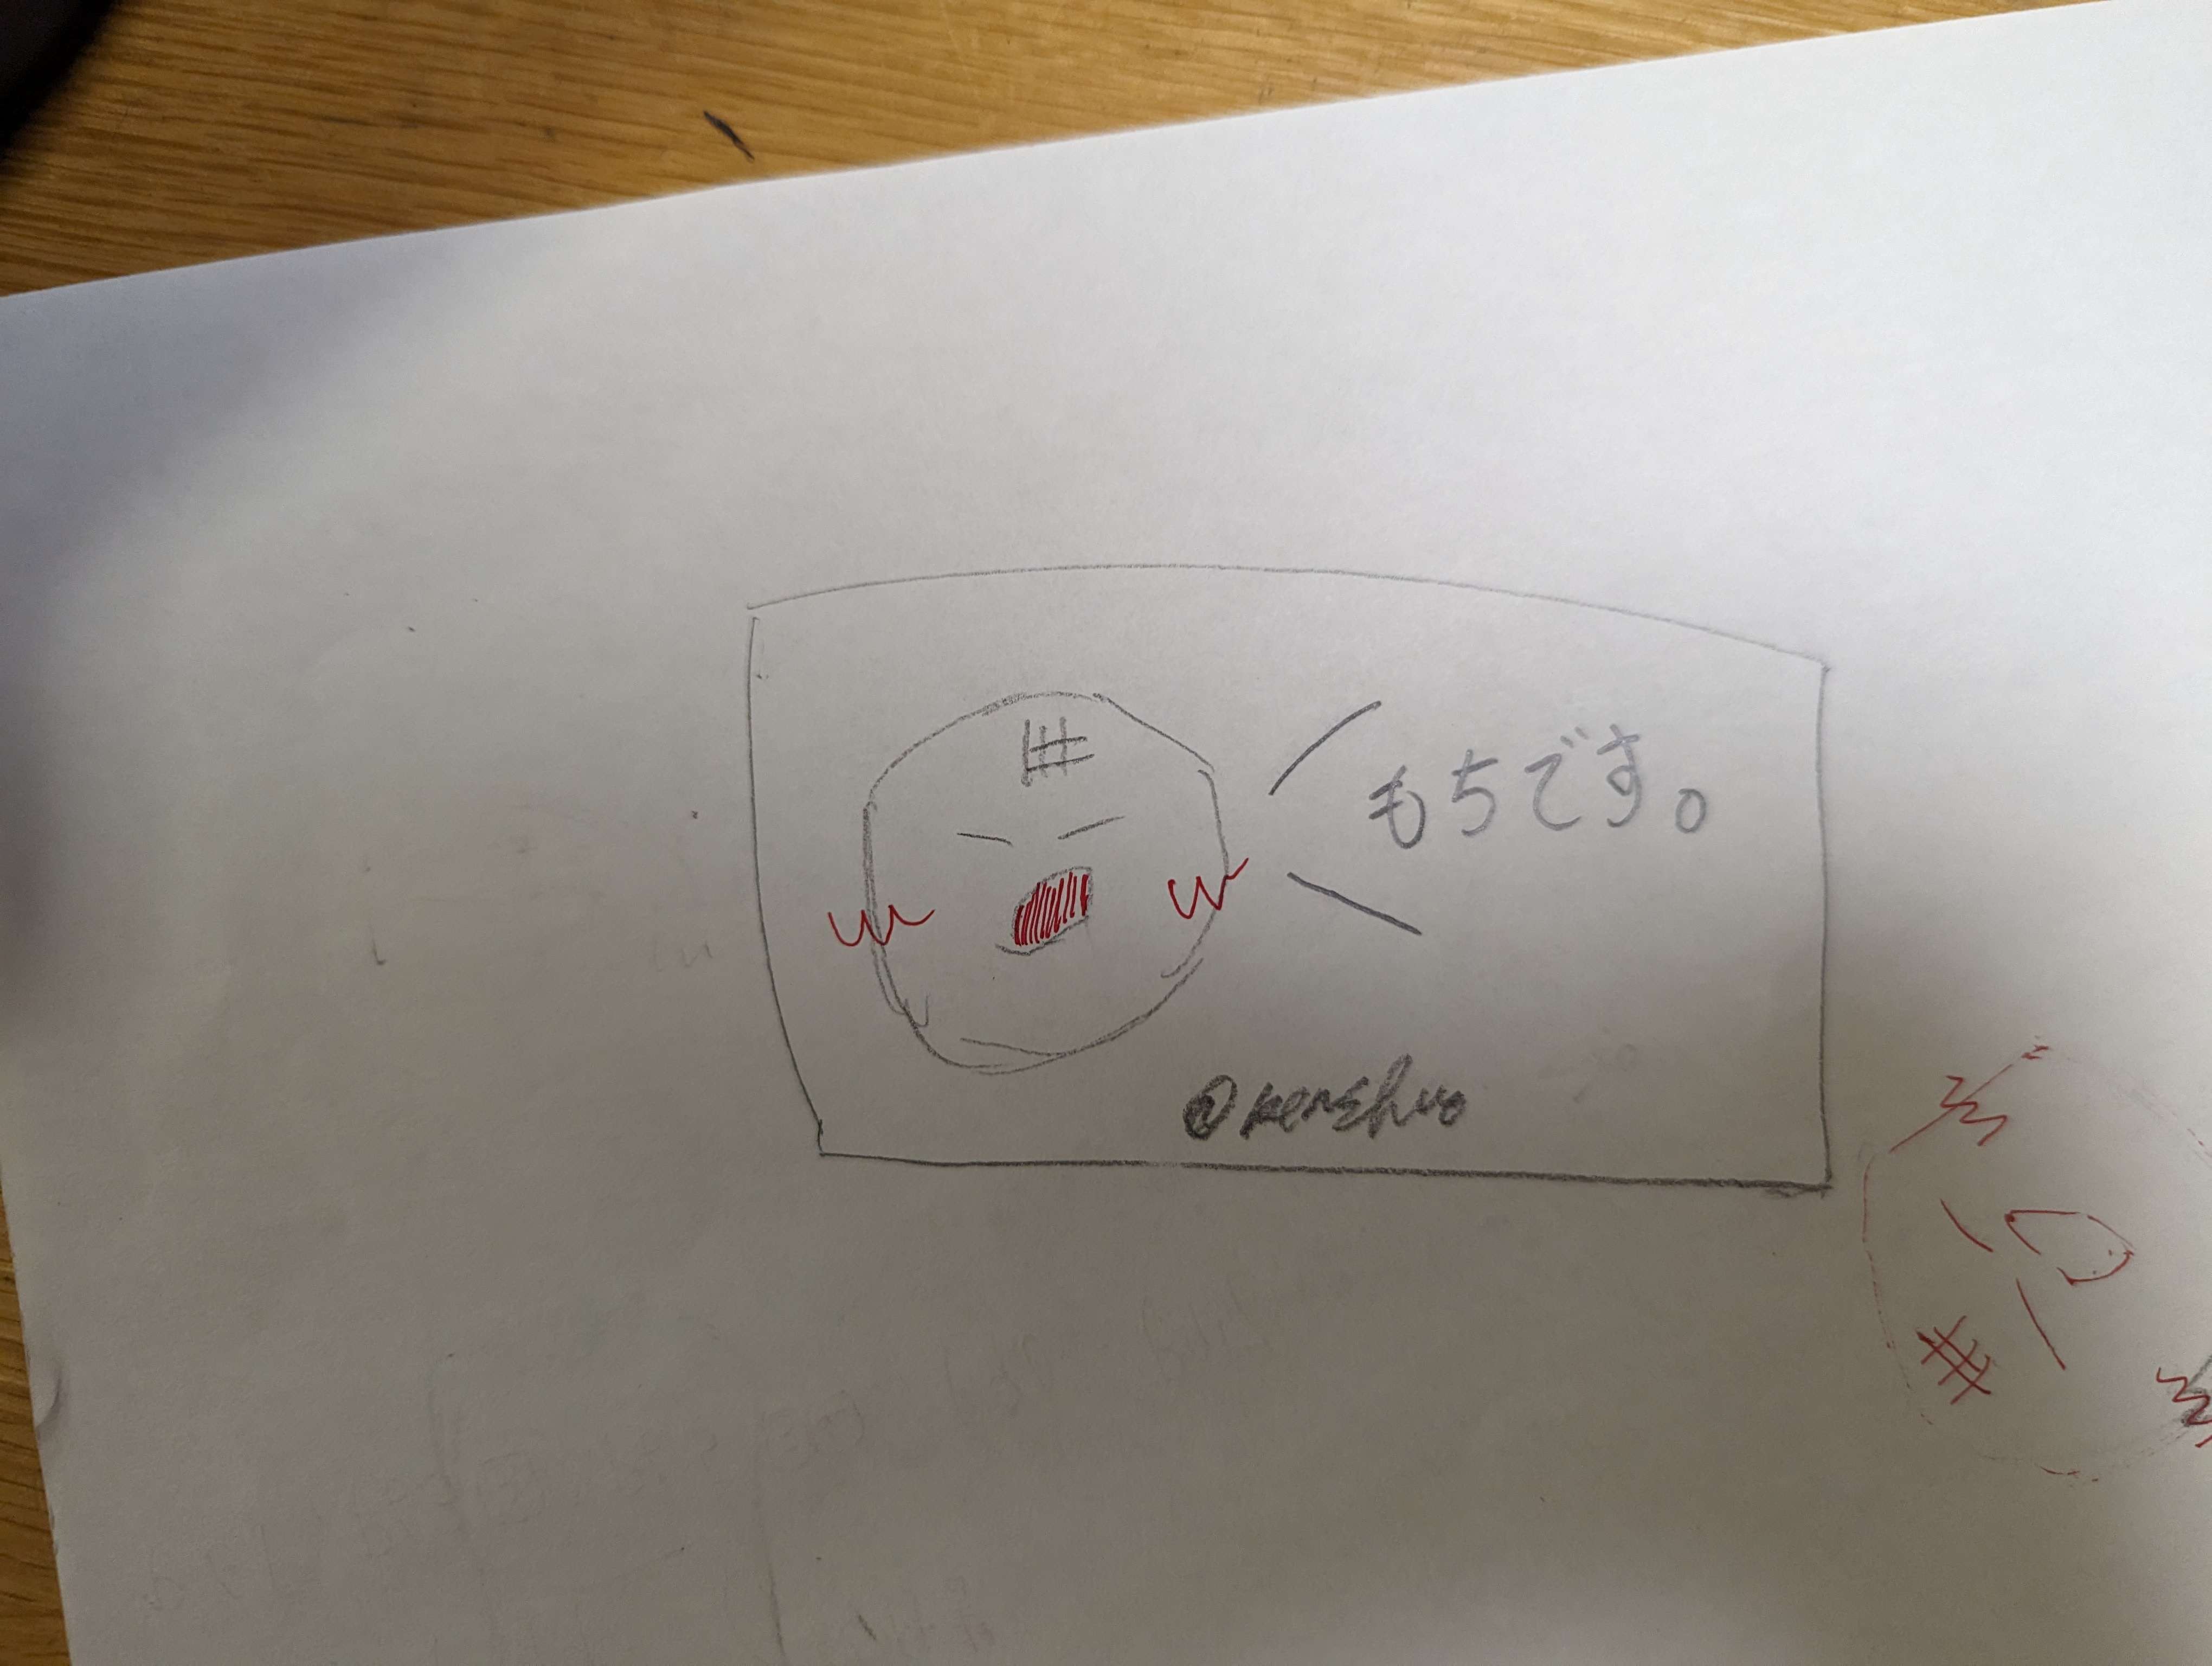 もちです。
@kenshuo